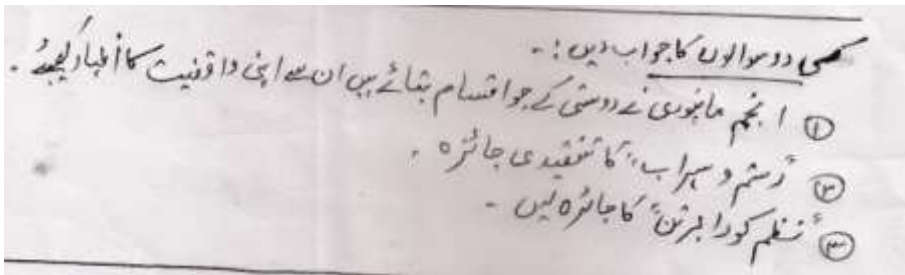 کسی دو سوالوں کا جواب دیں :-
① انجم مانپوری نے دوستی کے جو اقسام بتائے ہیں ان سے اپنی واقفیت کا اظہار کیجئے۔
② "رستم و سہراب" کا تنقیدی جائزہ ۔
③ "نظم کو را برتن" کا جائزہ لیں ۔